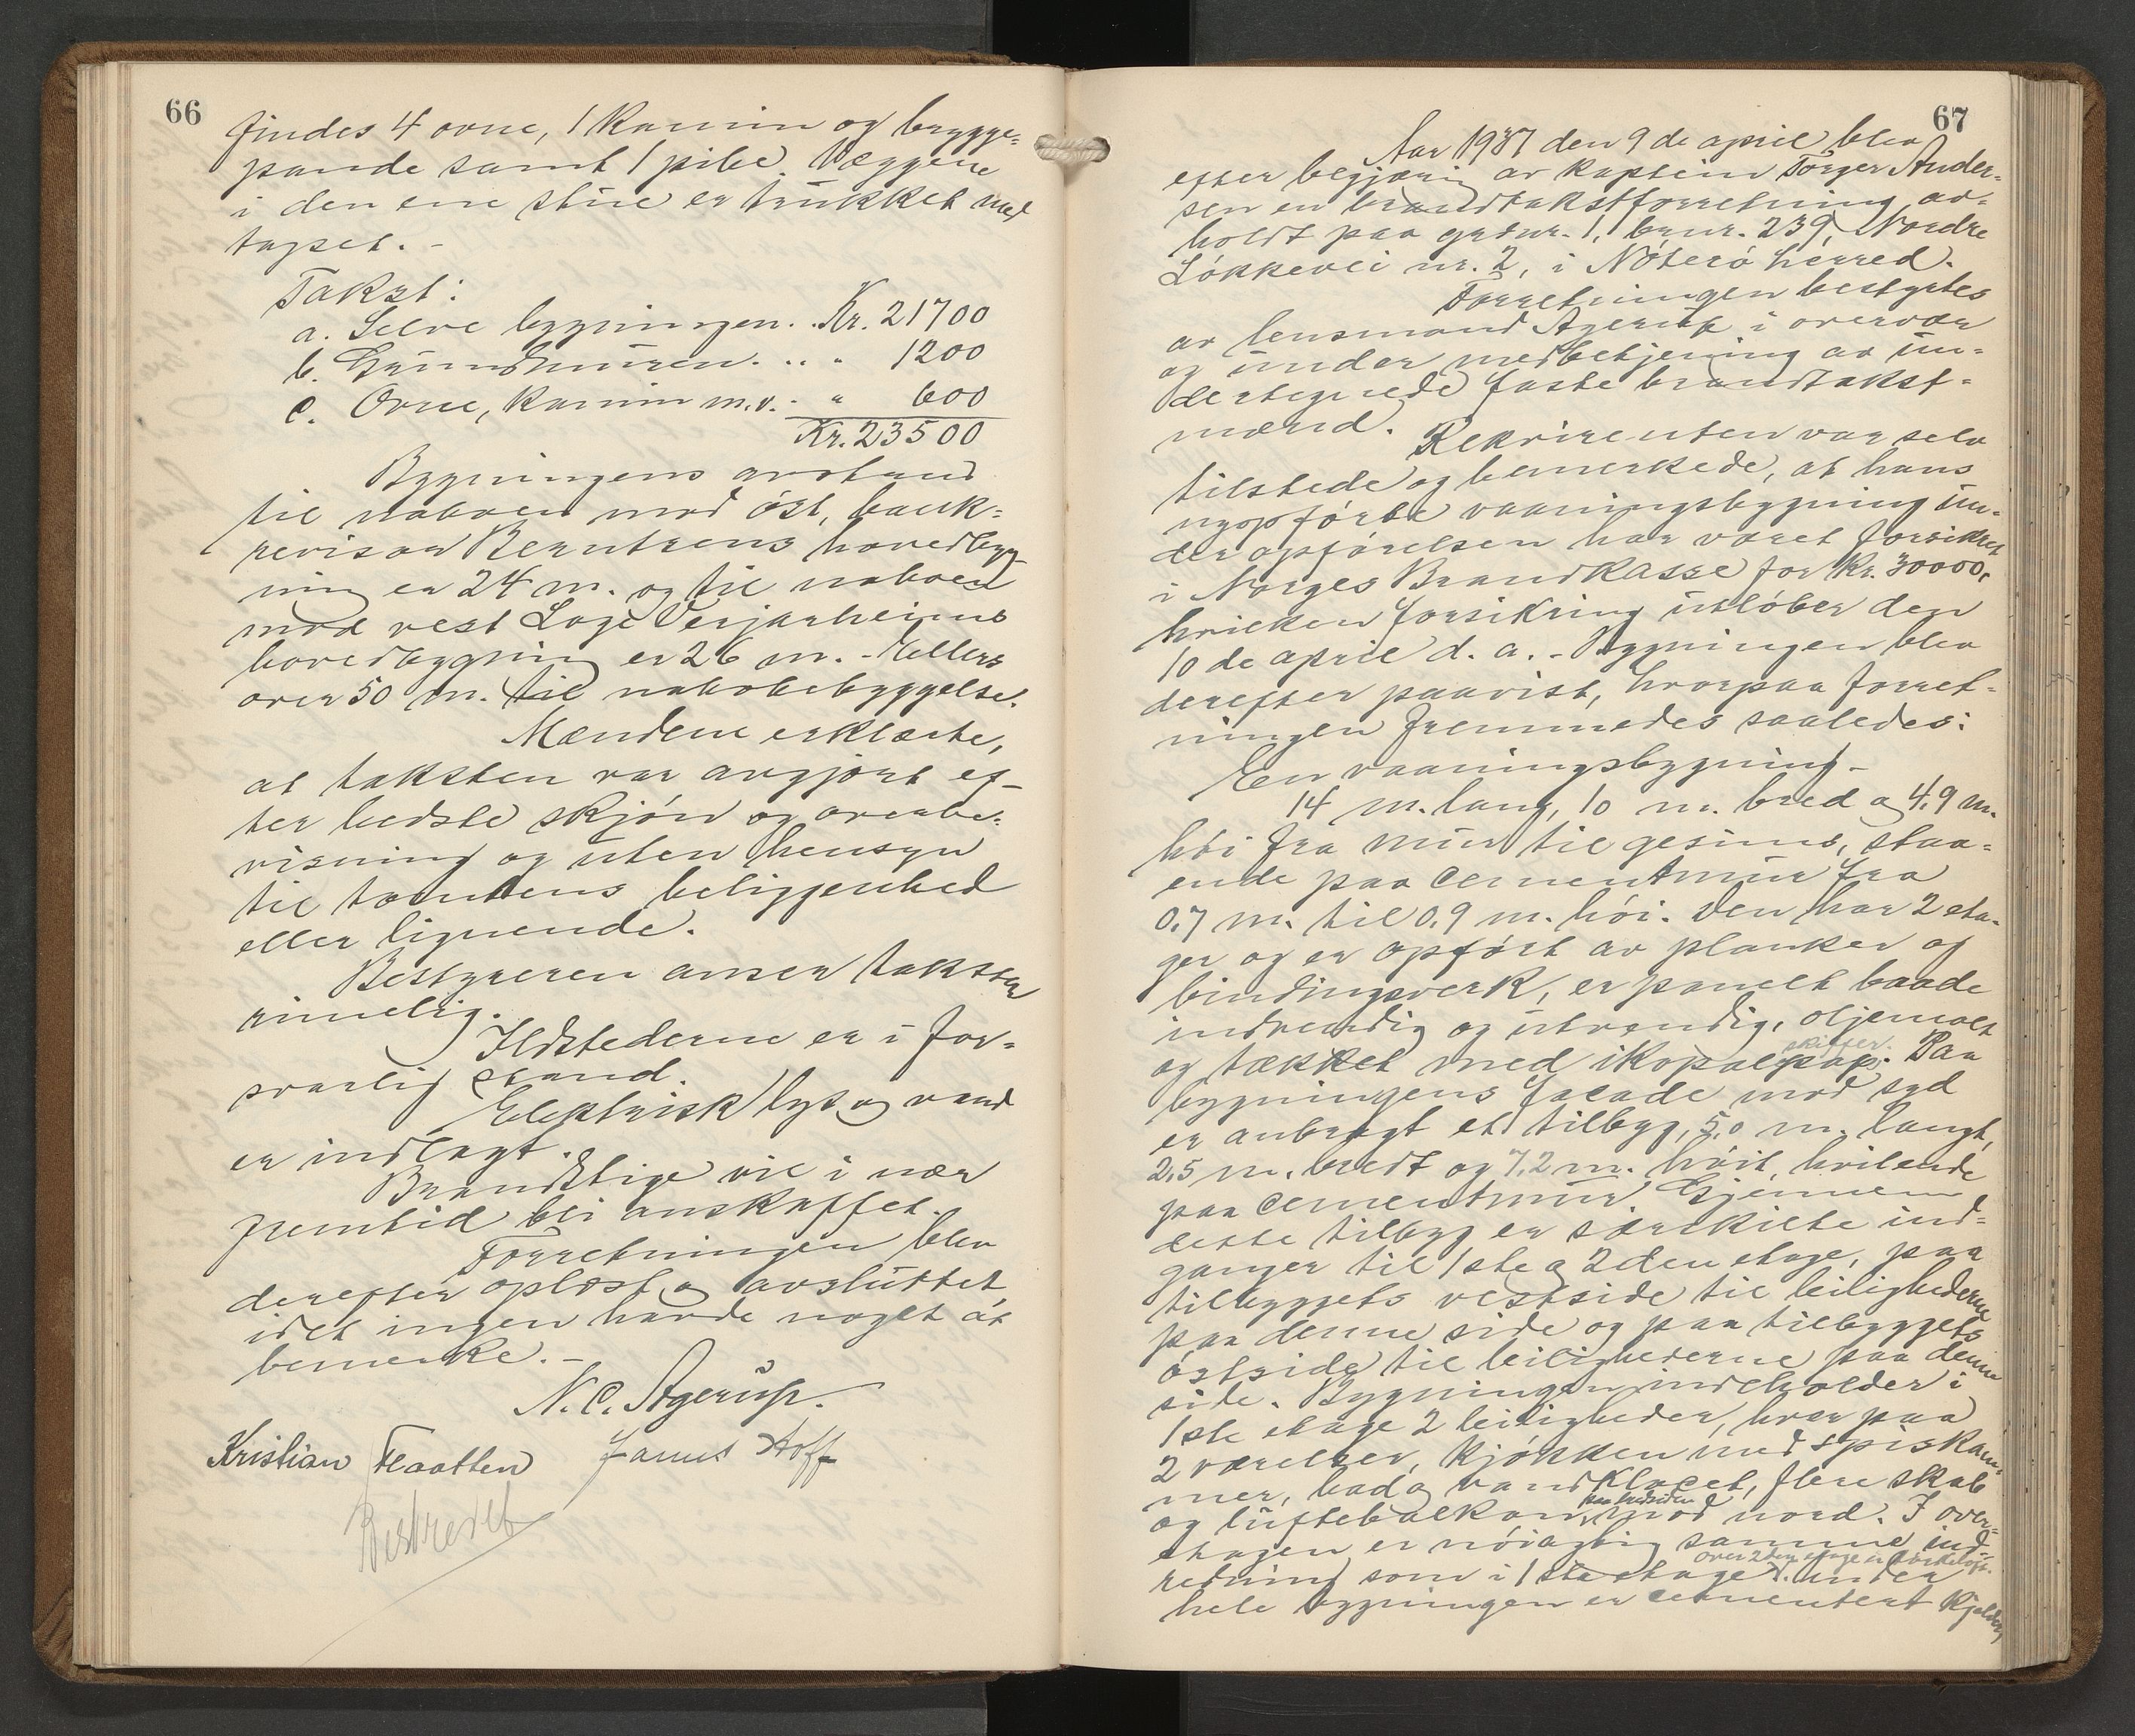 66
findes 4 ovne, 1 kamin og brygge-
pande samt 1 pibe. Væggene
i den ene stue er trukket med
tapet. -
Takst:
a. Selve bygningen. . Kr. 21700
b. Grundmuren. .. " 1200
c. Ovne, kamin m.v. - " 600
Kr. 23500
Bygningens avstand
til naboen mod øst, bank-
revisor Berntsens hovedbyg-
ning er 24 m. og til naboen
mod vest Loge Verjarheims
hovedbygning er 26 m. - Ellers
over 50 m. til nabobebyggelse.
Mændene erklærte,
at taksten var avgjort ef-
ter bedste skjøn og overbe-
visning og uten hensyn
til tomtens beliggenhed
eller lignende.
Bestyreren anser taksten
rimelig.
Ildstederne er i for-
svarlig stand.
Elektrisk lys og vand
er indlagt.
Brandstige vil i nær
fremtid bli anskaffet.
Forretningen blev
derefter oplæst og avsluttet,
idet ingen havde noget at
bemerke. -
N. C. Agerup.
Kristian Flaatten James Hoff
Beskrevet
67
Aar 1937 den 9de april blev
efter begjæring av kaptein Torger Ander-
sen en brandtakstforretning av-
holdt paa grdnr. 1, brnr. 239, Nordre
Løkkevei nr. 2, i Nøterø herred.
Forretningen bestyrtes
av lensmand Agerup i overvær
og under medbetjening av un-
dertegnede faste brandtakst-
mænd.
Rekvirenten var selv
tilstede og bemerkede, at hans
nyopførte vaaningsbygning un-
der opførelsen har været forsikret
i Norges Brandkasse for Kr. 30000,
hvilken forsikring utløber den
10de april d. a. - Bygningen blev
derefter paavist, hvorpaa forret-
ningen fremmedes saaledes:
En vaaningsbygning -
14 m. lang, 10 m. bred og 4.9 m.
høi fra mur til gesims, staa-
ende paa cementmur fra
0.7 m. til 0.9 m. høi. Den har 2 eta-
ger og er opført av planker og
bindingsverk, er panelt baade
indvendig og utvendig, oljemalt
skifer.
og tækket med ikopalpap. Paa
bygningens facade mod syd
er anbragt et tilbygg, 5.0 m. langt,
2.5 m. bredt og 7.2 m. høit, hvilende
paa cementmur. Gjennem
dette tilbygg er særskilte ind-
ganger til 1ste og 2den etage, paa
tilbyggets vestside til leilighederne
paa denne side og paa tilbyggets
østside til leilighederne paa denne
side. Bygningen indeholder i
1ste etage 2 leiligheder, hver paa
2 værelser, kjøkken med spiskam-
mer, bad og vandklocet, flere skab
og luftebalkon mod nord. I over-
etagen er nøiagtig samme ind-
over 2den etage er tørkeloft.
redning som i 1ste etage. Under
hele bygningen er cementert kjelder,